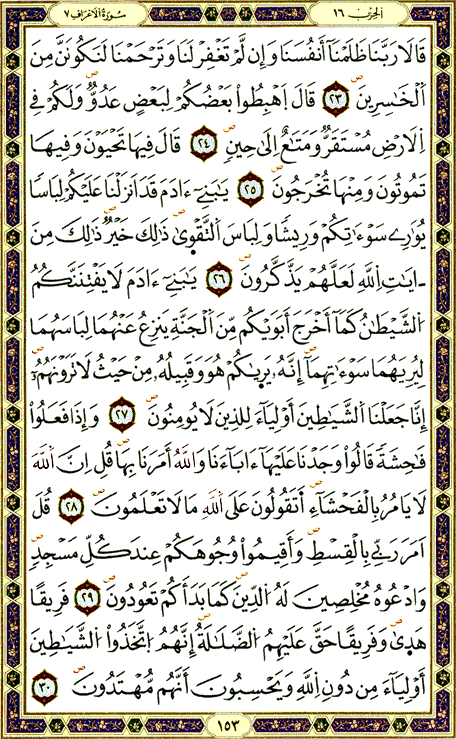 الحزب ١٦
سورة الأعراف ٧
قَالَا رَبَّنَا ظَلَمْنَآ أَنفُسَنَا وَإِن لَّمْ تَغْفِرْ لَنَا وَتَرْحَمْنَا لَنَكُونَنَّ مِنَ
اَلْخَٰسِرِينَ ٢٣ قَالَ اَهْبِطُواْ بَعْضُكُمْ لِبَعْضٍ عَدُوٌّ وَلَكُمْ فِے
اِلَارْضِ مُسْتَقَرٌّ وَمَتَٰعٌ اِلَىٰ حِينٍ ٢٤ قَالَ فِيهَا تَحْيَوْنَ وَفِيهَا
تَمُوتُونَ وَمِنْهَا تُخْرَجُونَ ٢٥ يَٰبَنِےٓ ءَادَمَ قَدَ اَنزَلْنَا عَلَيْكُمْ لِبَاسًا
يُوَٰرِے سَوْءَٰتِكُمْ وَرِيشًا وَلِبَاسَ اَلتَّقْوَىٰ ذَٰلِكَ خَيْرٌ ذَٰلِكَ مِنَ
ايَٰتِ اِللَّهِ لَعَلَّهُمْ يَذَّكَّرُونَ ٢٦ يَٰبَنِےٓ ءَادَمَ لَا يَفْتِنَنَّكُمُ
اُلشَّيْطَٰنُ كَمَآ أَخْرَجَ أَبَوَيْكُم مِّنَ اَلْجَنَّةِ يَنزِعُ عَنْهُمَا لِبَاسَهُمَا
لِيُرِيَهُمَا سَوْءَٰتِهِمَآ إِنَّهُۥ يَرٜىٰكُمْ هُوَ وَقَبِيلُهُۥ مِنْ حَيْثُ لَا تَرَوْنَهُمُۥٓ
إِنَّا جَعَلْنَا اَلشَّيَٰطِينَ أَوْلِيَآءَ لِلذِينَ لَا يُومِنُونَ ٢٧ وَإِذَا فَعَلُواْ
فَٰحِشَةً قَالُواْ وَجَدْنَا عَلَيْهَآ ءَابَآءَنَا وَاللَّهُ أَمَرَنَا بِهَا قُلِ اِنَّ اَللَّهَ
لَا يَامُرُ بِالْفَحْشَآءِ اَ۬تَقُولُونَ عَلَى اَللَّهِ مَا لَا تَعْلَمُونَ ٢٨ قُلَ
اَمَرَ رَبِّے بِالْقِسْطِ وَأَقِيمُواْ وُجُوهَكُمْ عِندَ كُلِّ مَسْجِدٍ
وَادْعُوهُ مُخْلِصِينَ لَهُ اُلدِّينَ كَمَا بَدَأَكُمْ تَعُودُونَ ٢٩ فَرِيقًا
هَدَىٰ وَفَرِيقًا حَقَّ عَلَيْهِمُ اُلضَّلَٰلَةُ إِنَّهُمُ اُتَّخَذُواْ اُلشَّيَٰطِينَ
أَوْلِيَآءَ مِن دُونِ اِللَّهِ وَيَحْسِبُونَ أَنَّهُم مُّهْتَدُونَ ٣٠
١٥٣